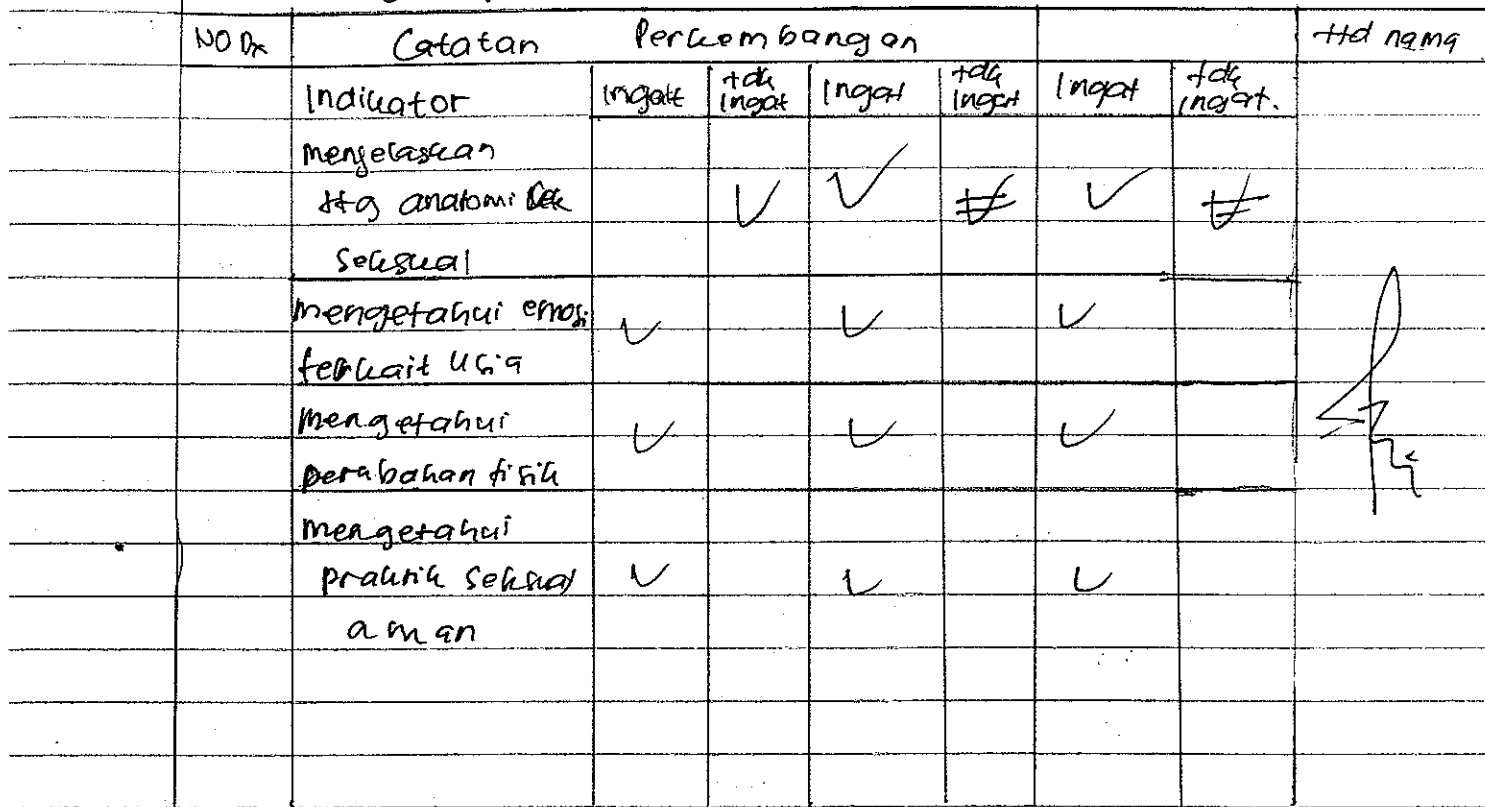 NO Dx Catatan Perkembangan ttd nama
Indikator Ingat tdk ingat Ingat tdk ingat Ingat tdk ingat.
menjelaskan
ttg anatomi
seksual
mengetahui emosi
terkait usia
mengetahui
perubahan fisik
mengetahui
praktik seksual
aman